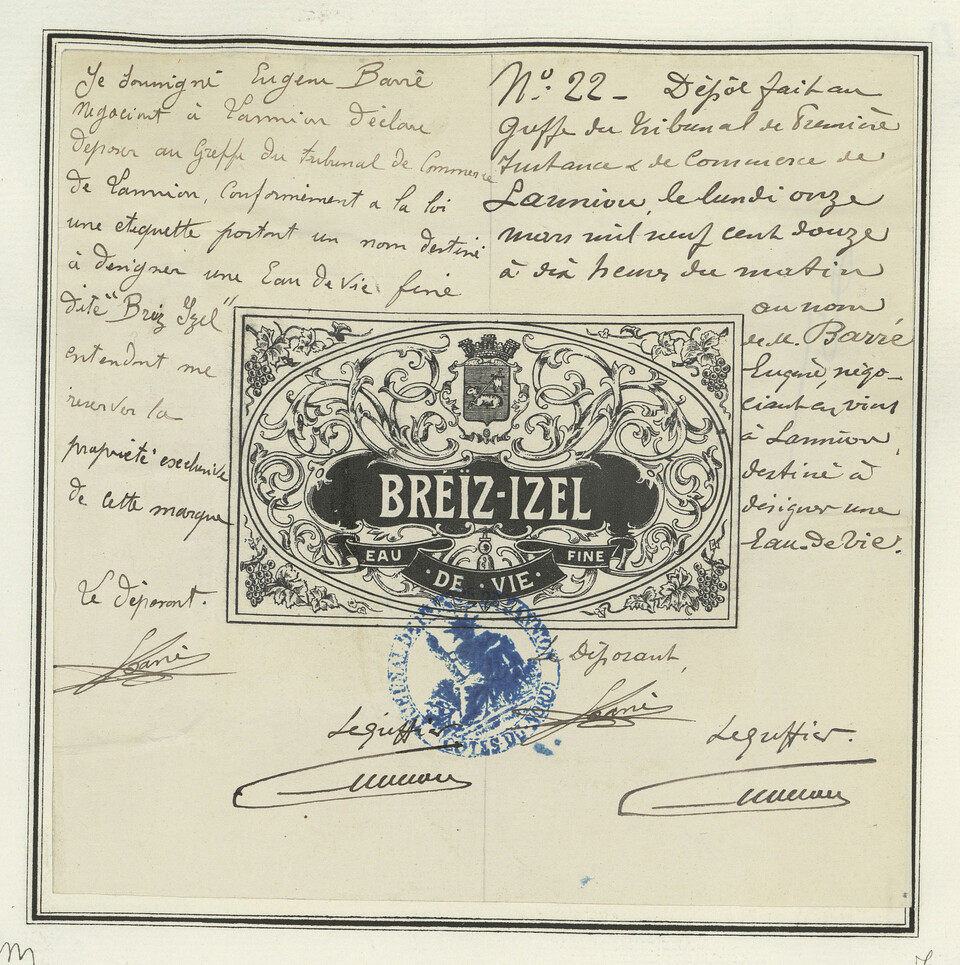 Je soussigné Eugene Barré
negociant à Lannion déclare
déposer au Greffe du tribunal de Commerce
de Lannion, conformément a la loi
une etiquette portant un nom destiné
à designer une Eau de vie fine
dite "Breiz Izel"
entendant me
réserver la
propriété exclusive
de cette marque
Le déposant.
Barré
N° 22 - Dépôt fait au
Greffe du Tribunal de Première
Instance & de Commerce de
Lannion, le lundi onze
mars mil neuf cent douze
à dix heures du matin
au nom
de M. Barré
Eugène, négo-
ciant en vins
à Lannion,
destiné à
désigner une
Eau-de-vie.
BREÏZ-IZEL
EAU · DE · VIE · FINE
Le Déposant,
Barré
Le greffier
Le greffier.
CÔTES DU NORD